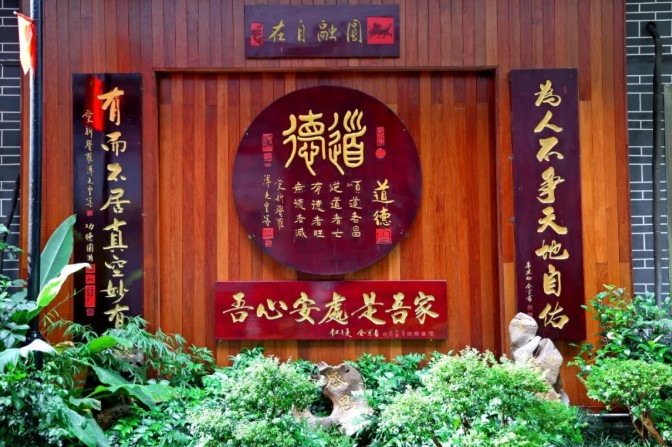 圓融自在
為人不爭天地自佑
道德
道德
順道者昌
逆道者亡
有德者旺
無德者滅
有而不居真空妙有
吾心安處是吾家